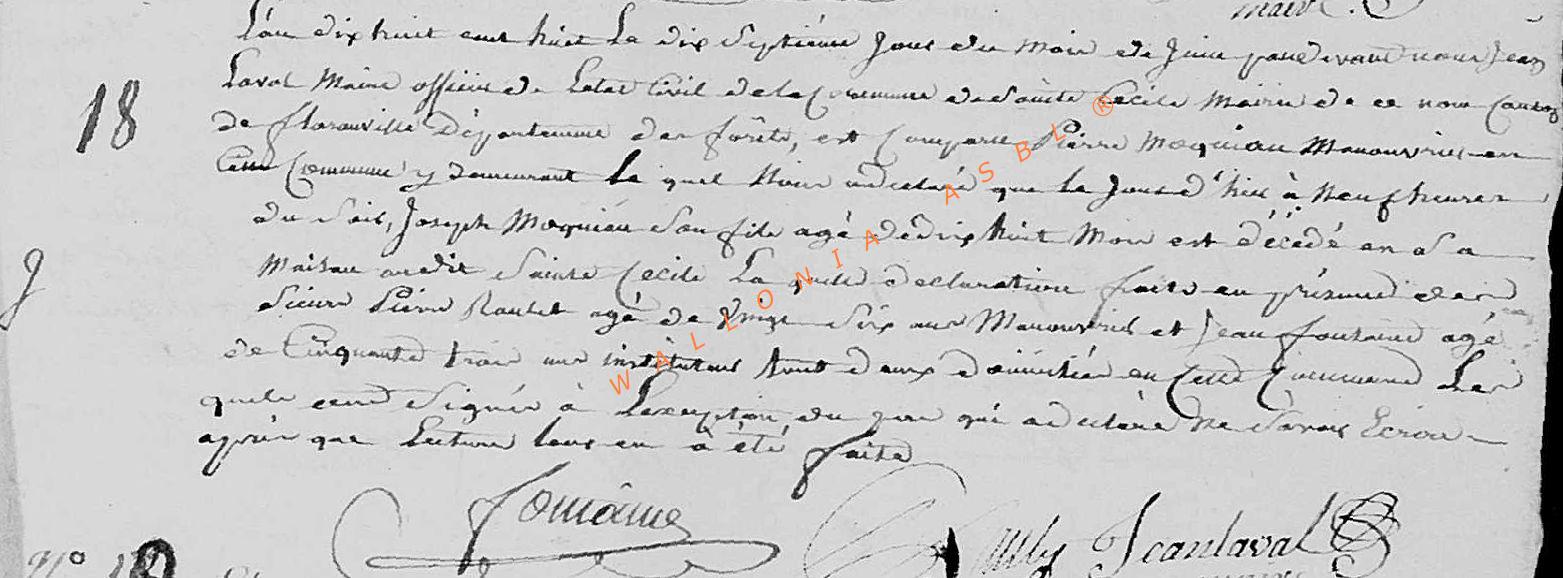 maire.
L'an dix huit cent huit Le dix Septième Jour du Mois de Juin pardevant nous Jean
18
Laval Maire officier de Letat Civil de la Commune de Sainte Cecile Mairie de ce nom Canton
de florenville Département des forêts, est Comparu Pierre Moquiau Manouvrier en
Cette Commune y demeurant le quel Nous a declaré que le Jour d'hier à Neuf heures
du Soir, Joseph Moquiau Son fils agé de dix huit Mois est décédé en Sa
J
Maison audit Sainte Cecile La quelle declaration faite en présence des
Sieurs Pierre agé de Vingt Six ans Manouvrier et Jean fontaine agé
de Cinquante trois ans instituteur tout deux domiciliés en Cette Commune Les
quels ont Signés à L'exception du pere qui a declaré Ne Savoir Ecrire
après que Lecture leur en à été faite
fontaine
Jean laval
WALLONIA ASBL ®
N° 19